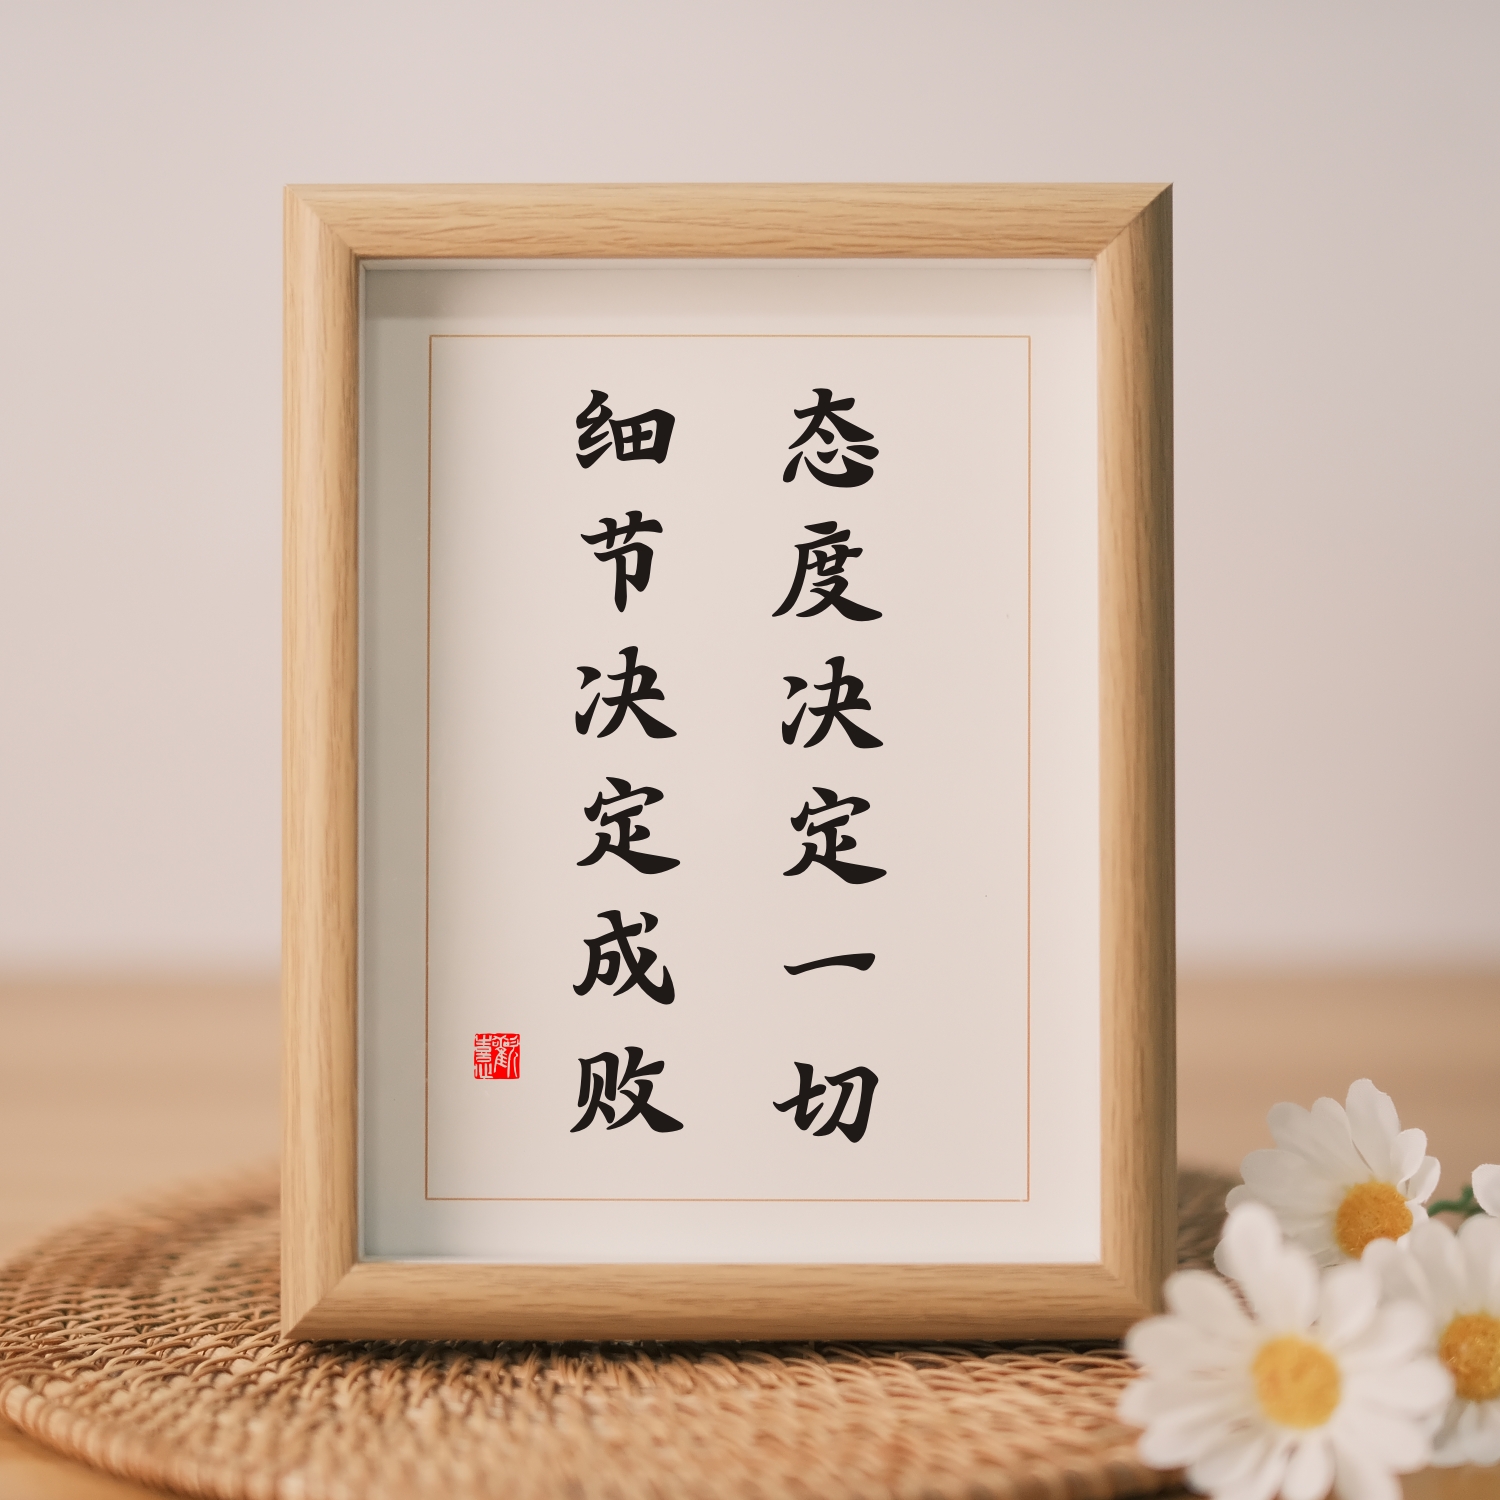 态度决定一切
细节决定成败
歡喜